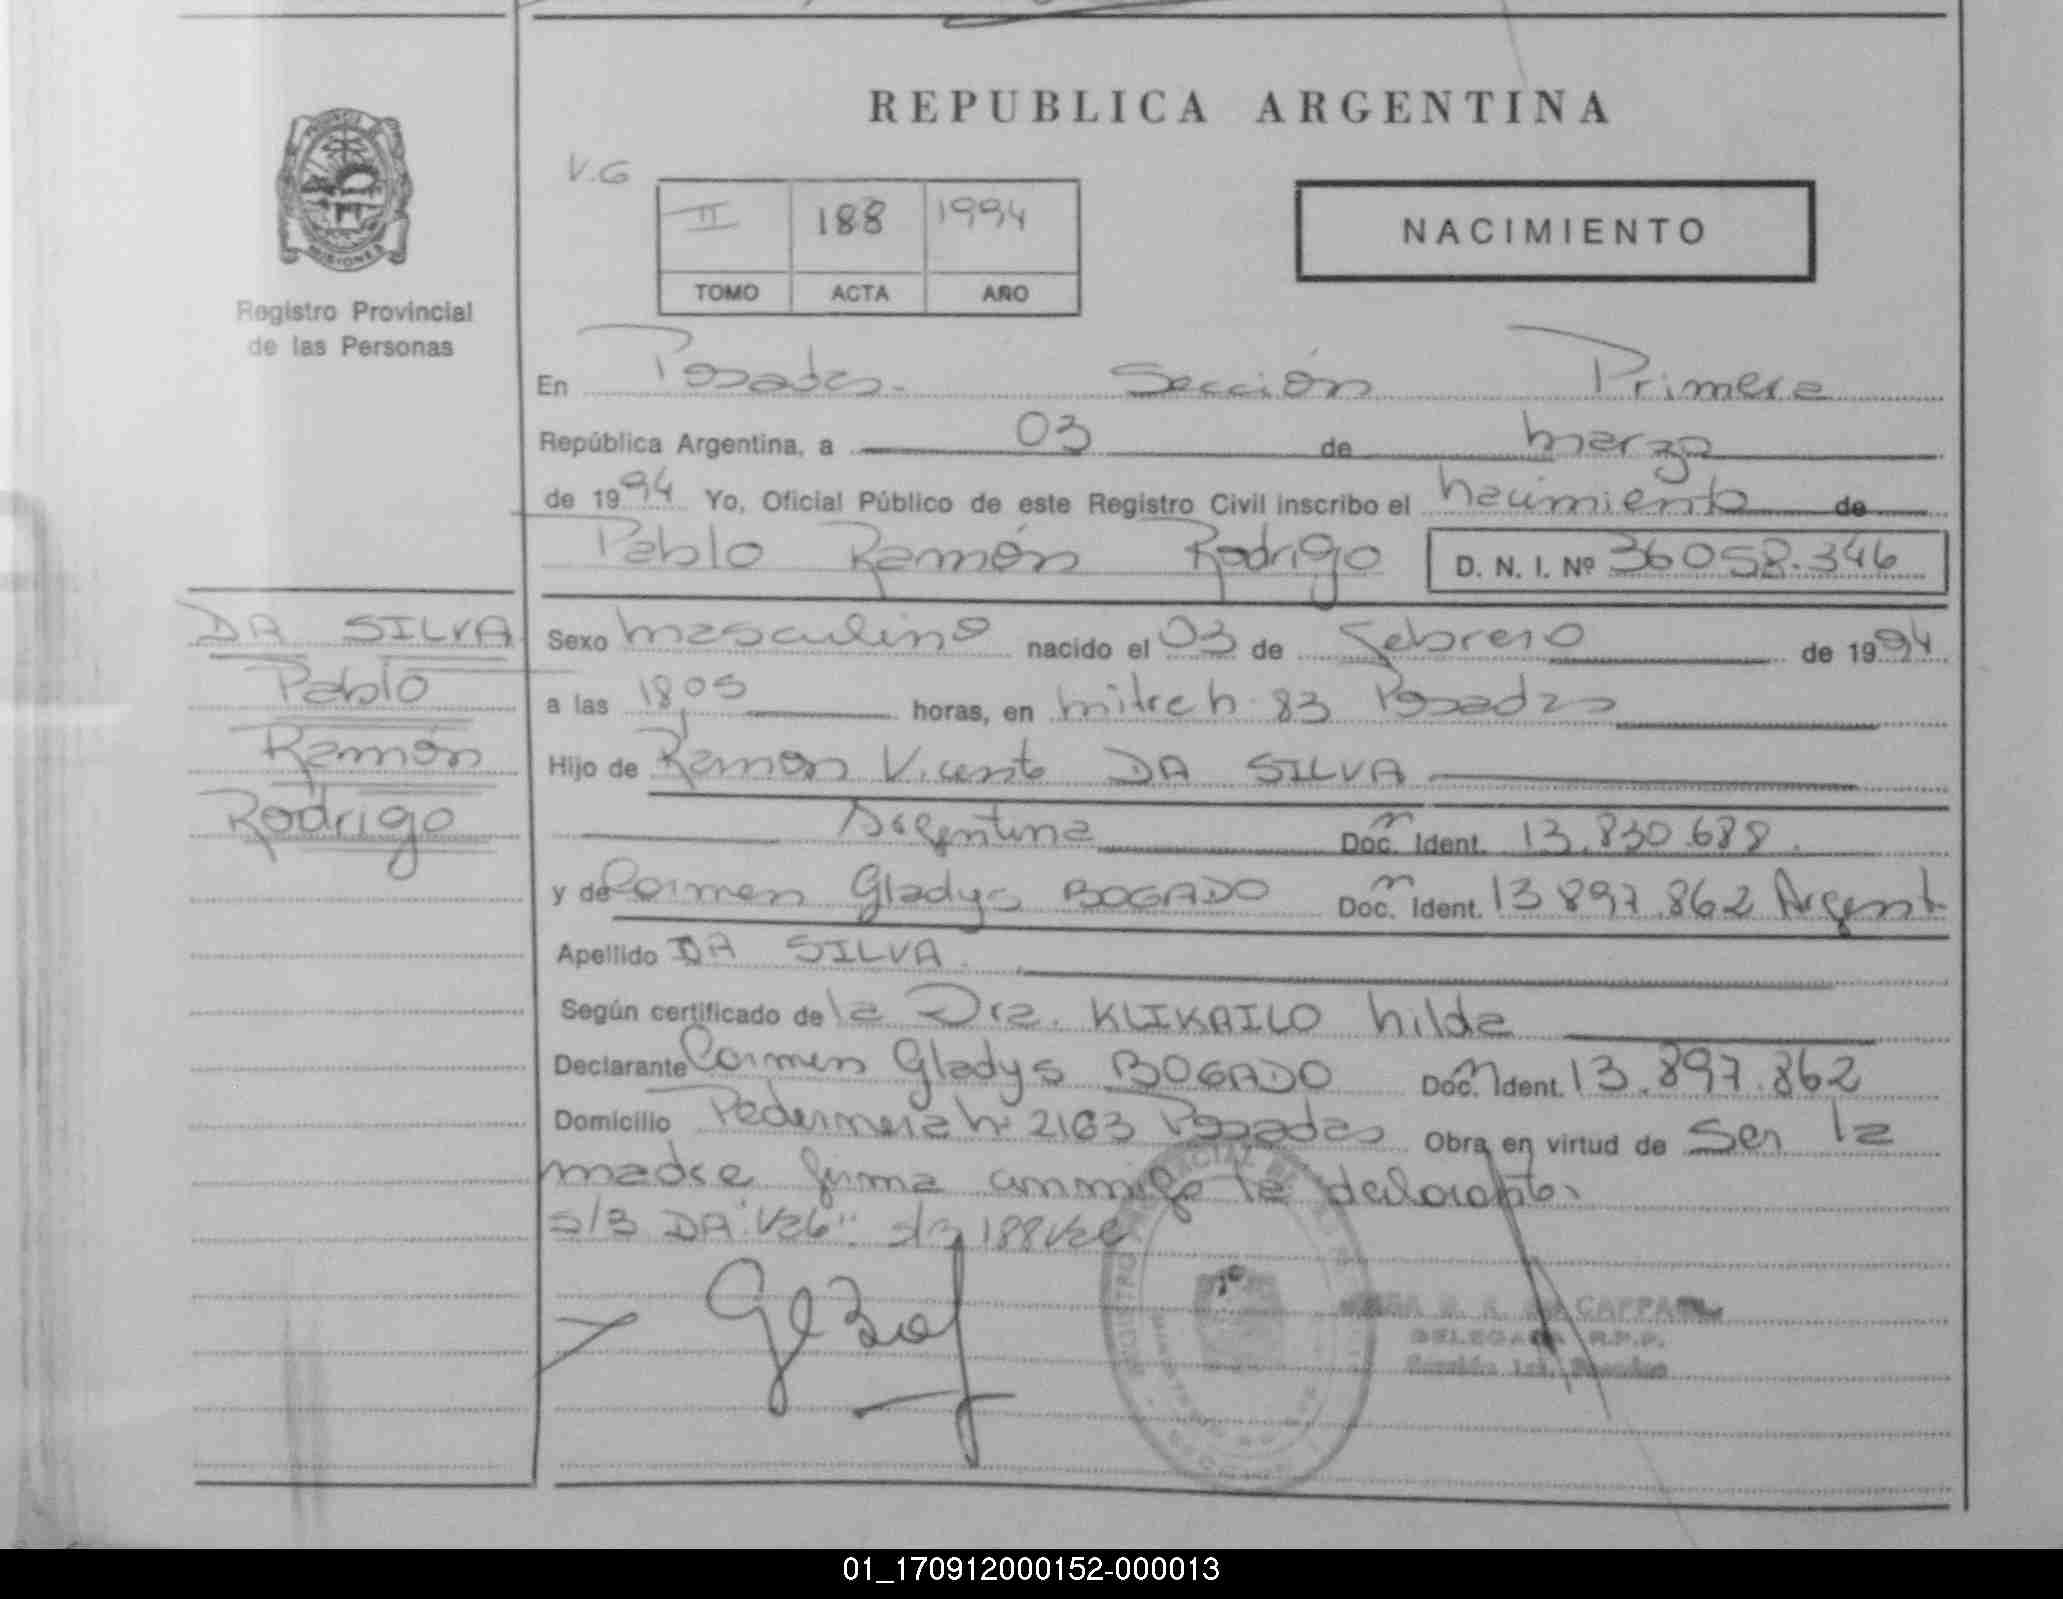 REPUBLICA ARGENTINA
V.G
II 188 1994
TOMO ACTA AÑO
NACIMIENTO
PROVINCIA DE MISIONES
Registro Provincial
de las Personas
En Posadas - Sección Primera
República Argentina, a 03 de marzo
de 1994 Yo, Oficial Público de este Registro Civil inscribo el nacimiento de
Pablo Ramón Rodrigo D. N. I. Nº 36058.346
DA SILVA
Pablo
Ramón
Rodrigo
Sexo masculino nacido el 03 de febrero de 1994
a las 18,05 horas, en mitre n· 83 Posadas
Hijo de Ramon Vicente DA SILVA
Argentina Doc. Ident. 13.830.688.
y de Carmen Gladys BOGADO Doc. Ident. 13 897.862 Argent.
Apellido DA SILVA.
Según certificado de la Dra. KLIKAILO hilda
Declarante Carmen Gladys BOGADO Doc. Ident. 13.897.862
Domicilio Pedernera n· 2163 Posadas Obra en virtud de ser la
madre firma conmigo la declarante.
s/B DA "Vale" s/B 188 Vale
CAPPA
DELEGADA R.P.P.
Sección 1ra. Posadas
01_170912000152-000013